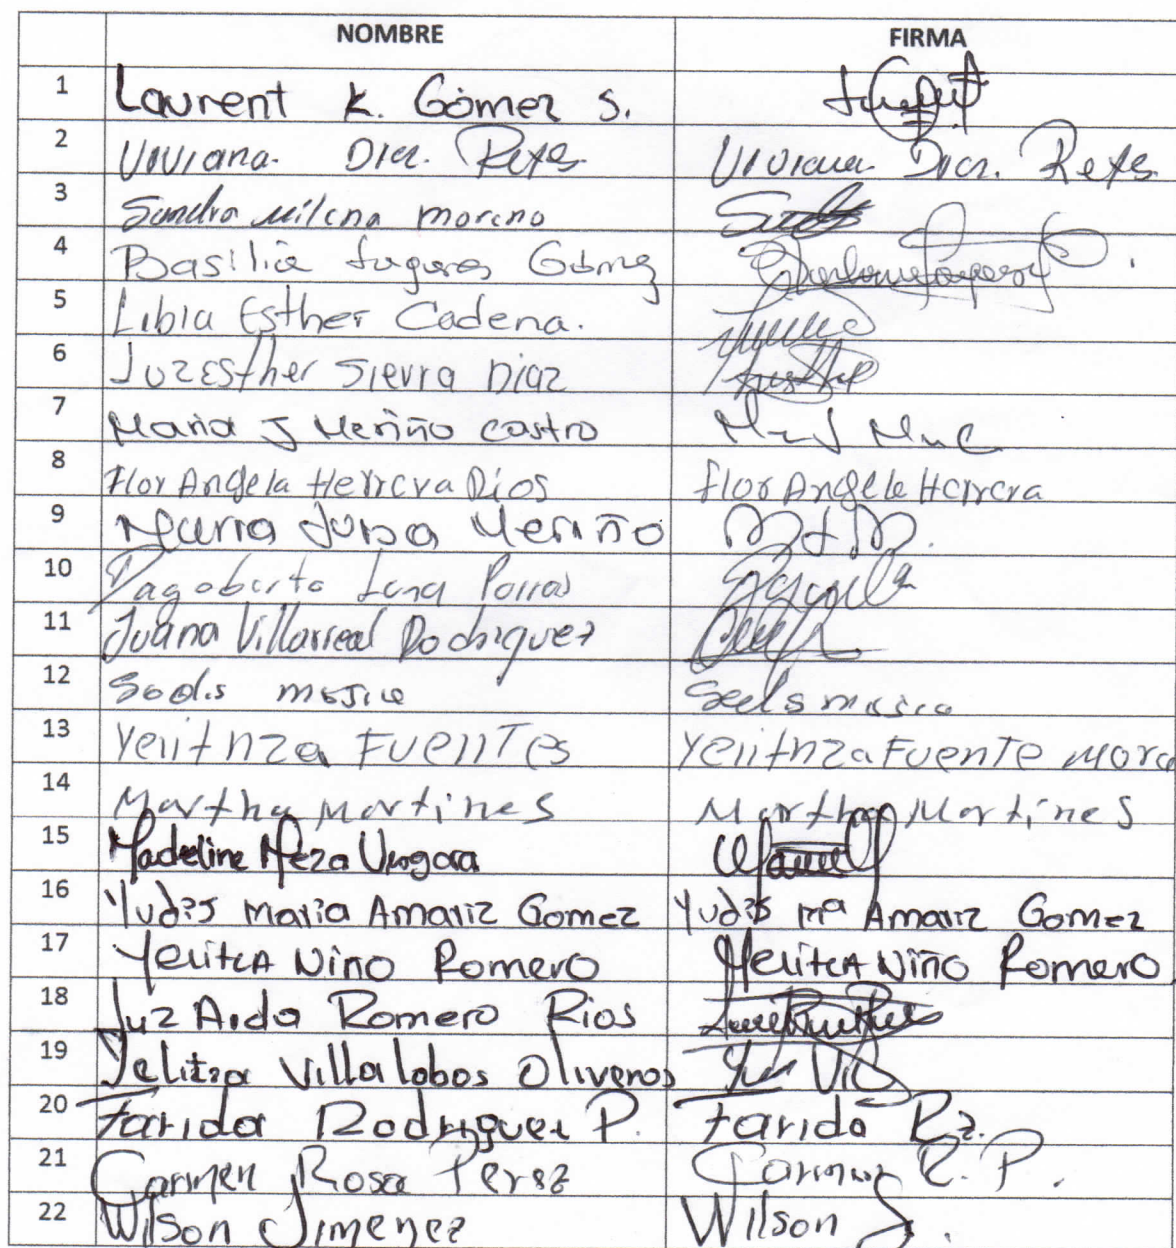 NOMBRE FIRMA
1 Laurent K. Gómez S.
2 Viviana Diaz. Reyes Viviana Diaz. Reyes
3 Sandra Milena moreno
4 Basilia Gómez
5 Libia Esther Cadena.
6 Luz Esther Sierra Diaz
7 Maria J Meriño castro
8 Flor Angela Herrera Rios Flor Angela Herrera
9 Maria Luisa Meriño M L M.
10 Dagoberto Luna Porras
11 Juana Villarreal Rodriguez
12
13 Yelithza FUENTES Yelithza FUENTE mora
14 Martha Martines Martha Martines
15 Madeline Meza Vergara
16 Yudis Maria Amariz Gomez Yudis Mª Amariz Gomez
17 Yelitza Niño Romero Yelitza Niño Romero
18 Luz Aida Romero Rios
19 Yelitza Villalobos Oliveros
20 Farida Rodriguez P. Farida Rz.
21 Carmen Rosa Perez Carmen R. P.
22 Wilson Jimenez Wilson J.